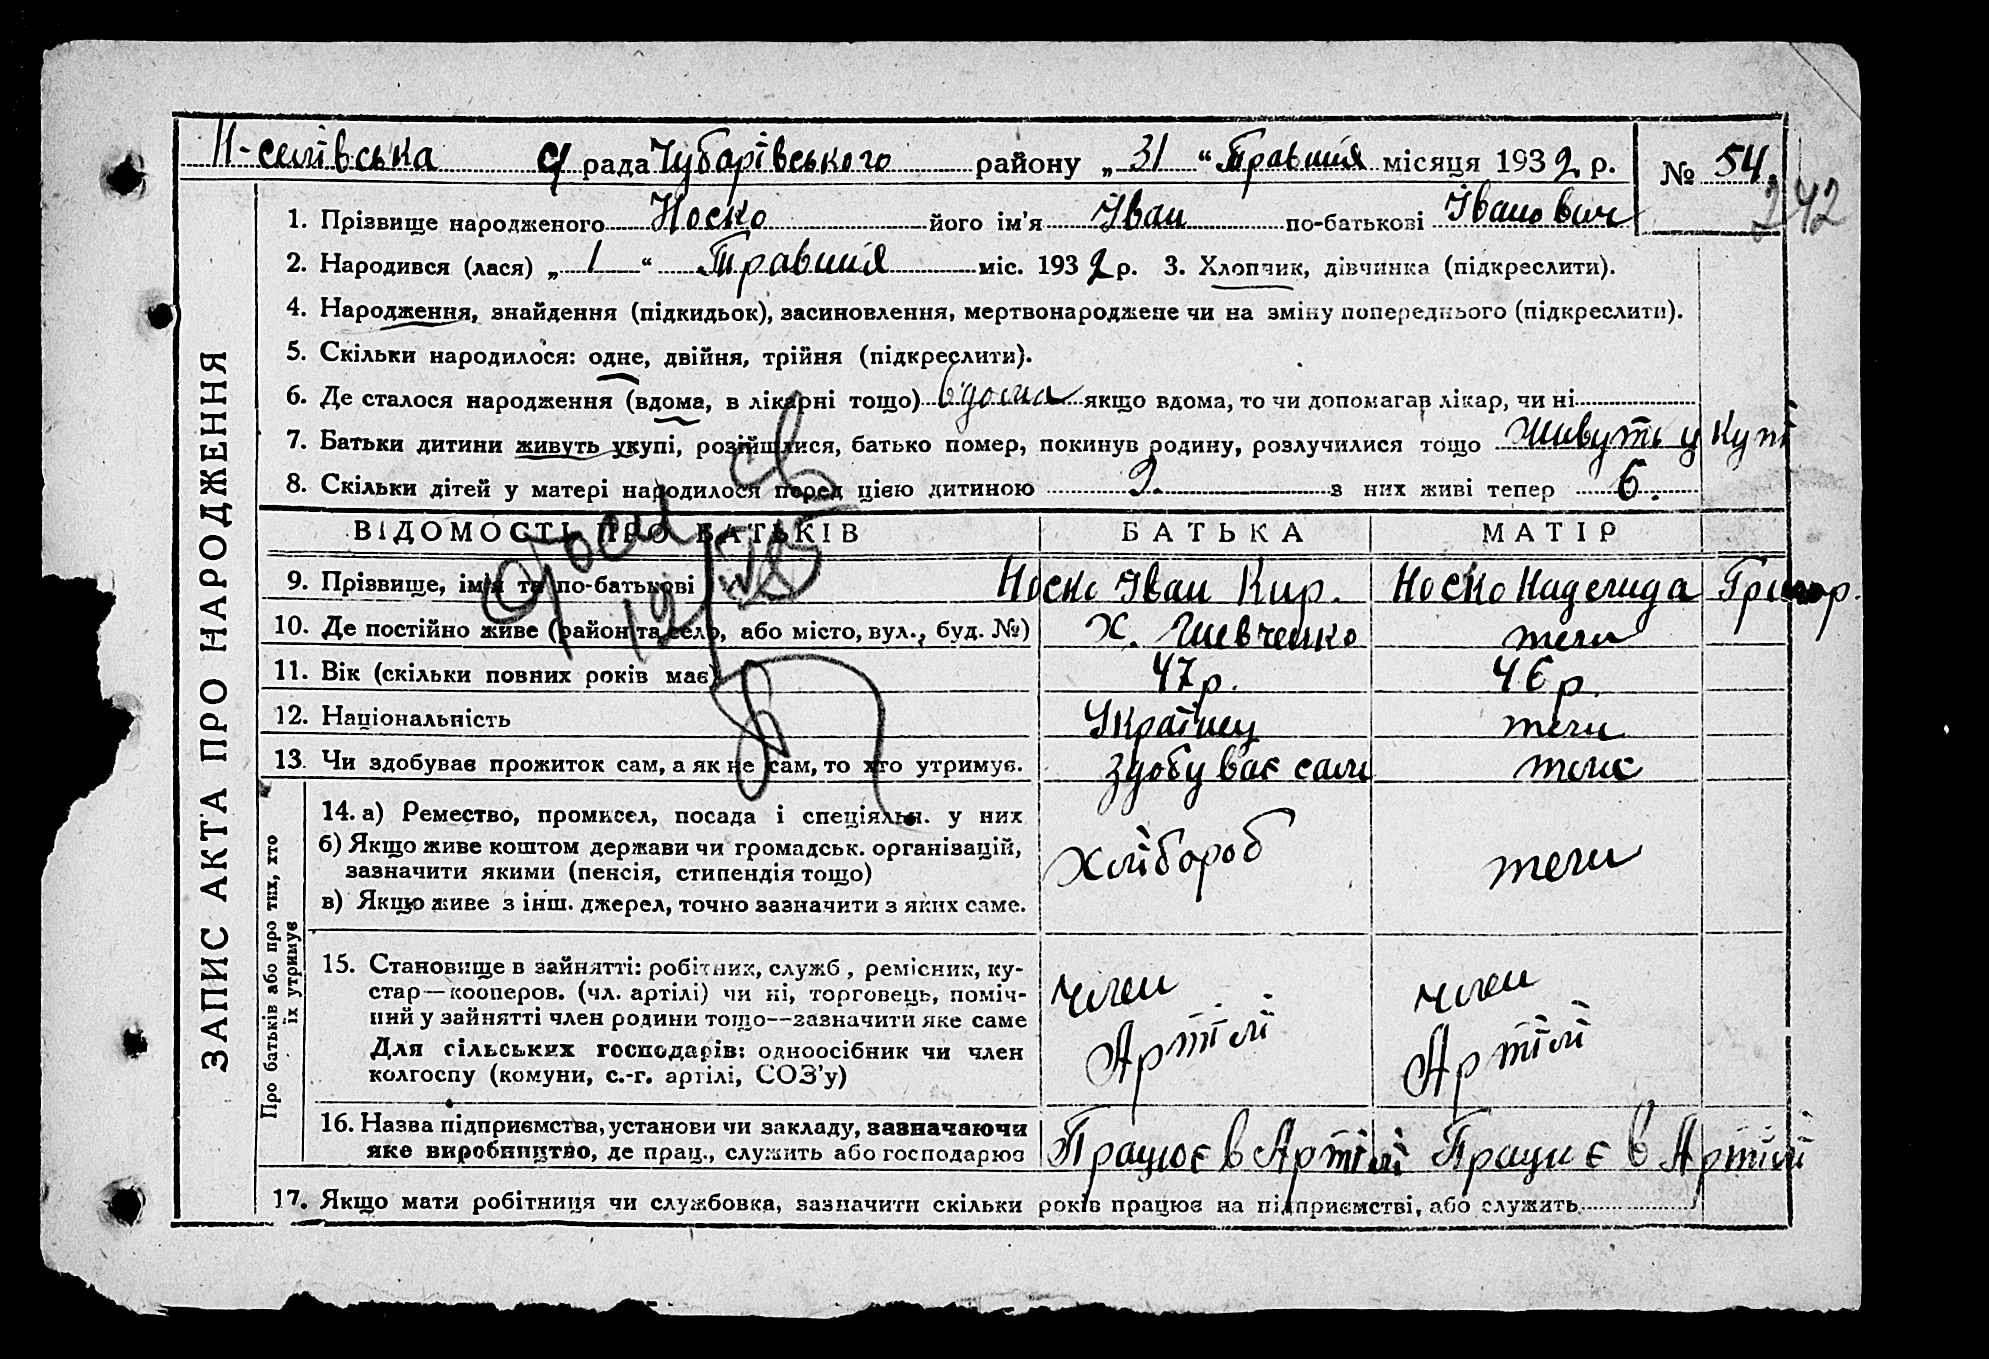 Н-селівська с/рада Чубарівського району „31“ Травния місяця 1932 р. № 54.
242
ЗАПИС АКТА ПРО НАРОДЖЕННЯ
1. Прізвище народженого Носко його ім'я Іван по-батькові Іванович
2. Народився (лася) „1“ Травния міс. 1932 р. 3. Хлопчик, дівчинка (підкреслити).
4. Народження, знайдення (підкидьок), засиновлення, мертвонароджене чи на зміну попереднього (підкреслити).
5. Скільки народилося: одне, двійня, трійня (підкреслити).
6. Де сталося народження (вдома, в лікарні тощо) вдома якщо вдома, то чи допомагав лікар, чи ні
7. Батьки дитини живуть укупі, розійшлися, батько помер, покинув родину, розлучилися тощо живуть у купі
8. Скільки дітей у матері народилося перед цією дитиною 9. з них живі тепер 6.
ВІДОМОСТЬ ПРО БАТЬКІВ БАТЬКА МАТІР
9. Прізвище, ім'я та по-батькові Носко Іван Кир. Носко Надежда Григор.
10. Де постійно живе (район та село, або місто, вул., буд. №) Х. Шевченко теж
11. Вік (скільки повних років має) 47 р. 46 р.
12. Національність Українец теж
13. Чи здобуває прожиток сам, а як не сам, то хто утримує. здобуває сам теж
Про батьків або про тих, хто їх утримує
14. а) Ремество, промисел, посада і спеціяльн. у них
б) Якщо живе коштом держави чи громадськ. організацій,
зазначити якими (пенсія, стипендія тощо) Хлібороб теж
в) Якщо живе з інш. джерел, точно зазначити з яких саме.
15. Становище в зайнятті: робітник, служб, ремісник, ку-
стар—кооперов. (чл. артілі) чи ні, торговець, поміч- член член
ний у зайнятті член родини тощо—зазначити яке саме
Для сільських господарів: одноосібник чи член Артілі Артілі
колгоспу (комуни, с.-г. артілі, СОЗ'у)
16. Назва підприємства, установи чи закладу, зазначаючи
яке виробництво, де прац., служить або господарює Працює в Артілі Працує в Артілі
17. Якщо мати робітниця чи службовка, зазначити скільки років працює на підприємстві, або служить